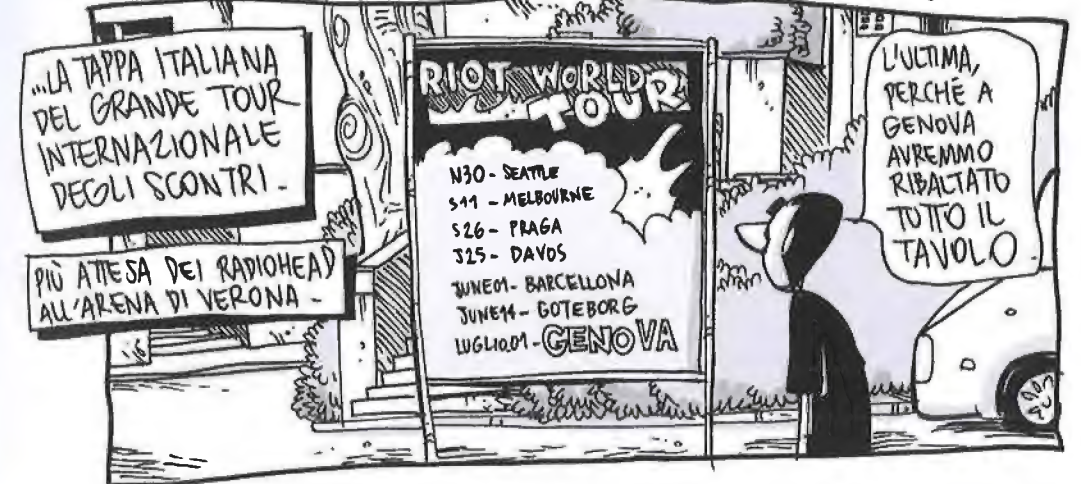 ...LA TAPPA ITALIANA
DEL GRANDE TOUR
INTERNAZIONALE
DEGLI SCONTRI -
PIÙ ATTESA DEI RADIOHEAD
ALL'ARENA DI VERONA -
RIOT WORLD
TOUR
N30 - SEATTLE
S11 - MELBOURNE
S26 - PRAGA
J25 - DAVOS
JUNE01 - BARCELLONA
JUNE14 - GOTEBORG
LUGLIO01 - GENOVA
L'ULTIMA,
PERCHÉ A
GENOVA
AVREMMO
RIBALTATO
TUTTO IL
TAVOLO